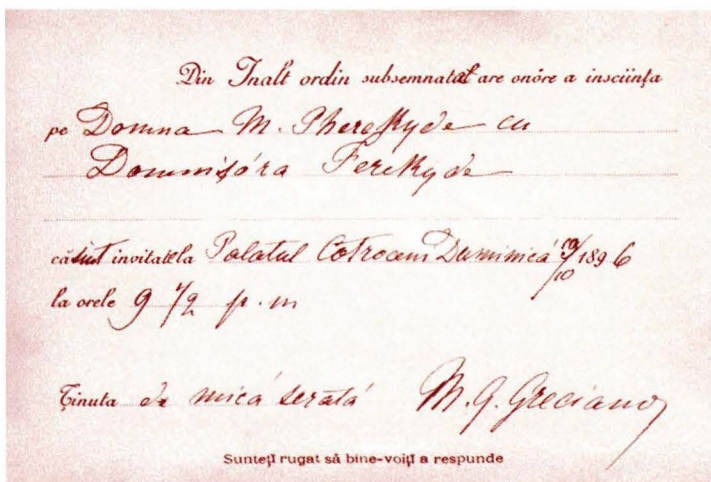 Din Inalt ordin subsemnatul are onóre a insciința
pe Domna M. Pherekyde cu
Domnișóra Ferekyde
că sunt invitate la Palatul Cotroceni Duminică /10 1896
la orele 9 1/2 p.m
Ținuta de mică serată M. G. Greciano
Sunteți rugat să bine-voiți a respunde